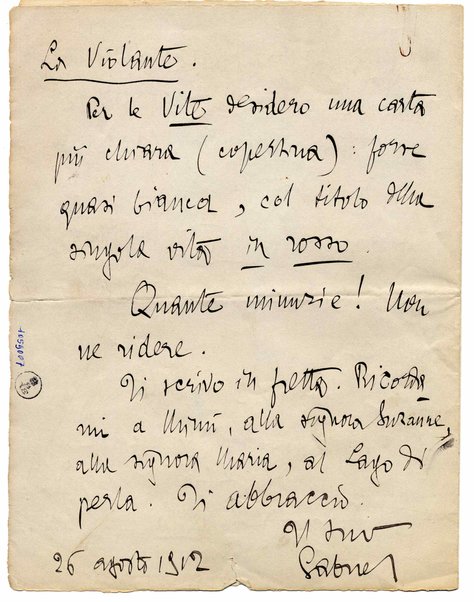 La Violante.
Per le Vite desidero una carta
più chiara (copertina): forse
quasi bianca, col titolo della
singola vita in rosso.
Quante minuzie! Non
ne ridere.
Ti scrivo in fretta. Ricorda
mi a Mimì, alla signora Suzanne,
alla signora Maria, al Lago di
perla. Ti abbraccio.
Il tuo
Gabriel
26 agosto 1912